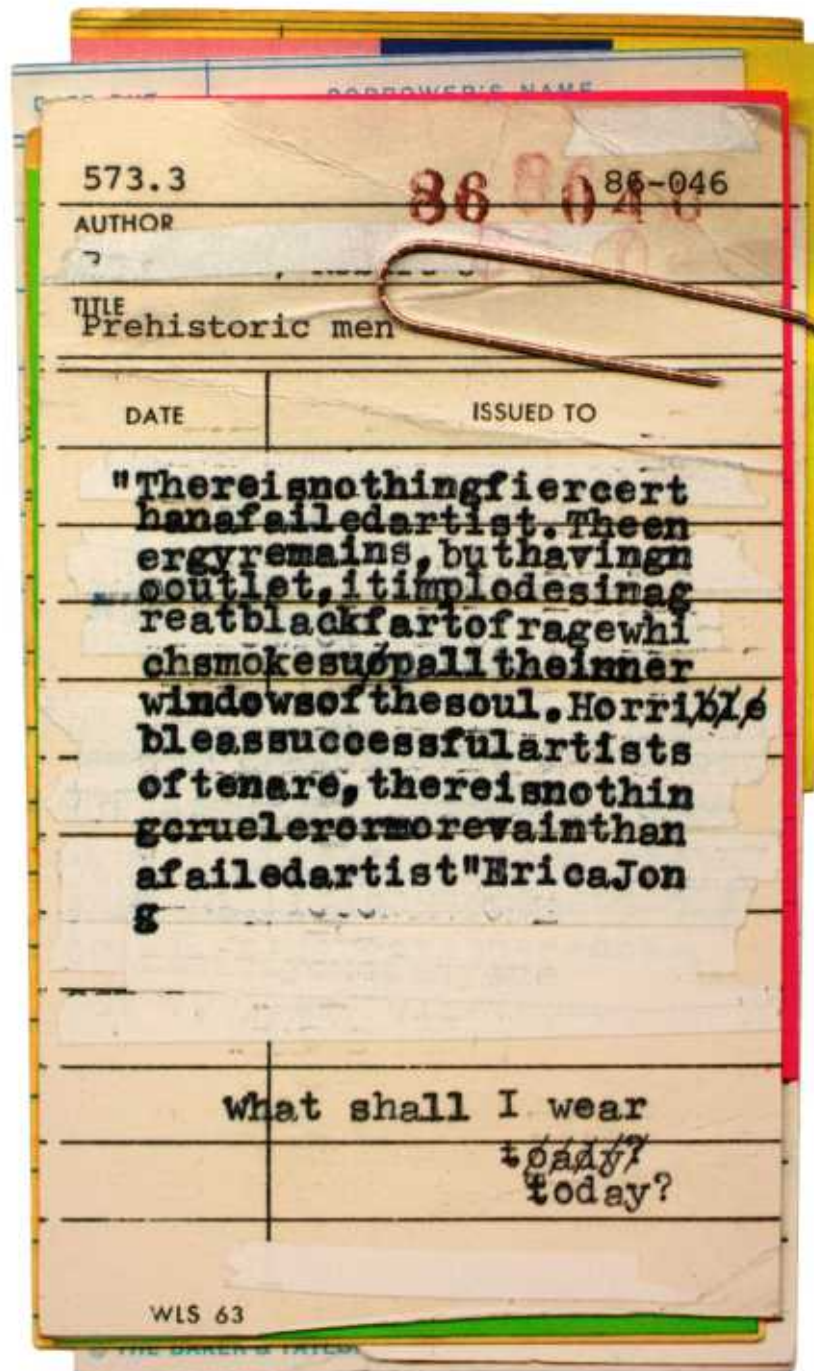 BORROWER'S NAME
573.3
86 046
86-046
AUTHOR
TITLE
Prehistoric men
DATE ISSUED TO
"Thereisnothingfiercert
hanafailedartist.Theen
ergyremains,buthavingn
ooutlet,itimplodesinag
reatblackfartofragewhi
chsmokesuopalltheinner
windowsofthesoul.Horrible
bleassuccessfulartists
oftenare,thereisnothin
gcruelerormorevainthan
afailedartist"EricaJon
g
what shall I wear
toady?
today?
WLS 63
© THE BAKER & TAYLOR